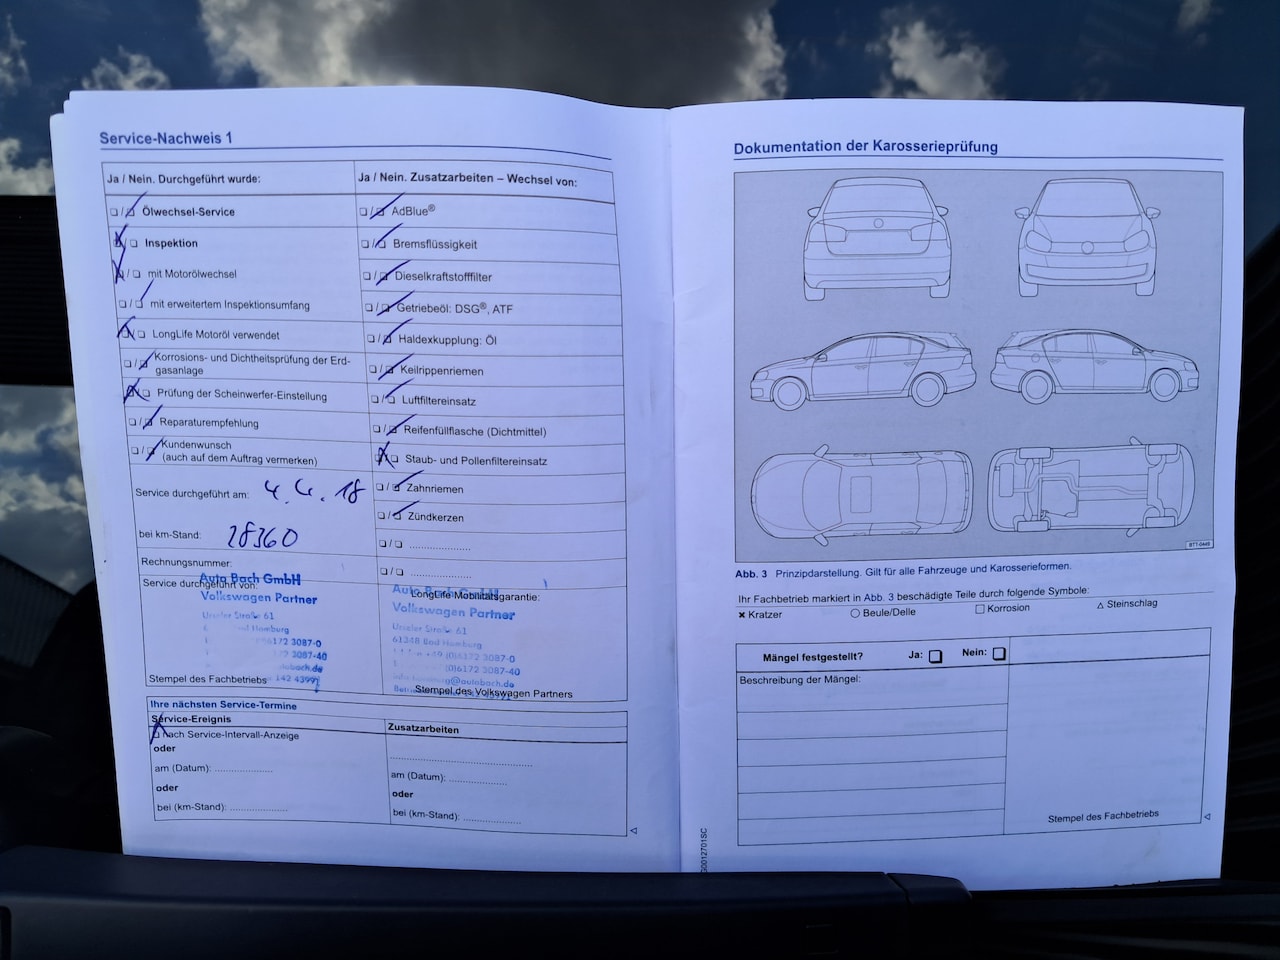 Service-Nachweis 1
Ja / Nein. Durchgeführt wurde:
Ölwechsel-Service
Inspektion
mit Motorölwechsel
mit erweitertem Inspektionsumfang
LongLife Motoröl verwendet
Korrosions- und Dichtheitsprüfung der Erd-
gasanlage
Prüfung der Scheinwerfer-Einstellung
Reparaturempfehlung
Kundenwunsch
(auch auf dem Auftrag vermerken)
Service durchgeführt am: 4.4.18
bei km-Stand: 28360
Rechnungsnummer:
Service durchgeführt von:
Auto Bach GmbH
Volkswagen Partner
Urseler Straße 61
Bad Homburg
6172 3087-0
172 3087-40
autobach.de
Stempel des Fachbetriebs
Ja / Nein. Zusatzarbeiten – Wechsel von:
AdBlue®
Bremsflüssigkeit
Dieselkraftstofffilter
Getriebeöl: DSG®, ATF
Haldexkupplung: Öl
Keilrippenriemen
Luftfiltereinsatz
Reifenfüllflasche (Dichtmittel)
Staub- und Pollenfiltereinsatz
Zahnriemen
Zündkerzen
LongLife Mobilitätsgarantie:
Auto Bach GmbH
Volkswagen Partner
Urseler Straße 61
61348 Bad Homburg
+49 (0)6172 3087-0
(0)6172 3087-40
@autobach.de
Stempel des Volkswagen Partners
Ihre nächsten Service-Termine
Service-Ereignis
nach Service-Intervall-Anzeige
oder
am (Datum): ....................
oder
bei (km-Stand): ....................
Zusatzarbeiten
am (Datum): ....................
oder
bei (km-Stand): ....................
Dokumentation der Karosserieprüfung
BT1-0449
Abb. 3 Prinzipdarstellung. Gilt für alle Fahrzeuge und Karosserieformen.
Ihr Fachbetrieb markiert in Abb. 3 beschädigte Teile durch folgende Symbole:
✖ Kratzer ○ Beule/Delle □ Korrosion △ Steinschlag
Mängel festgestellt? Ja: Nein:
Beschreibung der Mängel:
Stempel des Fachbetriebs